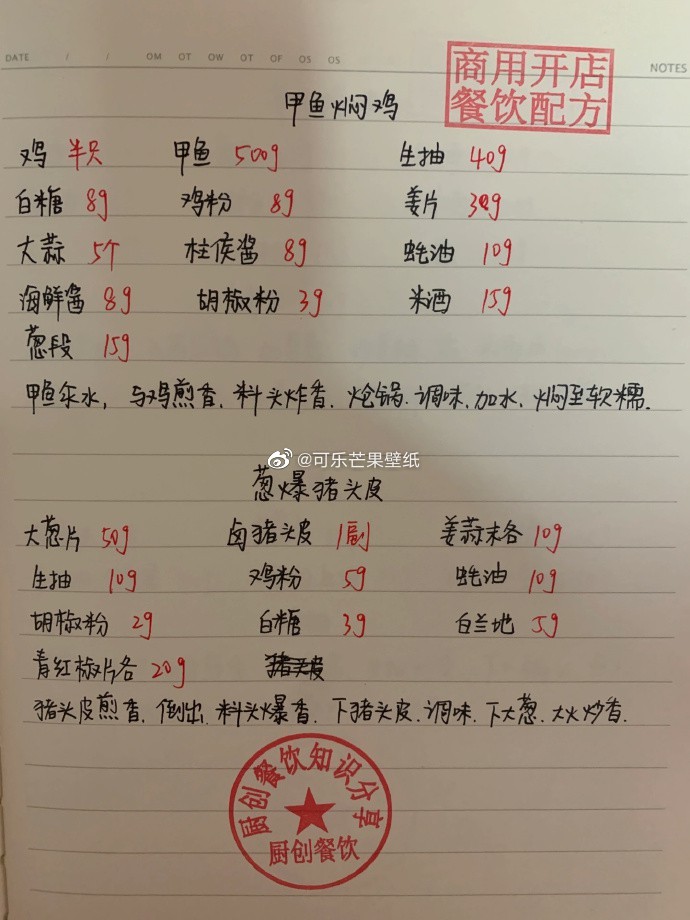 DATE / / OM OT OW OT OF OS OS
NOTES
商用开店
餐饮配方
甲鱼焖鸡
鸡 半只 甲鱼 500g 生抽 40g
白糖 8g 鸡粉 8g 姜片 30g
大蒜 5个 柱侯酱 8g 蚝油 10g
海鲜酱 8g 胡椒粉 3g 米酒 15g
葱段 15g
甲鱼汆水，与鸡煎香，料头炸香，炝锅，调味，加水，焖至软糯.
@可乐芒果壁纸
葱爆猪头皮
大葱片 50g 卤猪头皮 1副 姜蒜末各 10g
生抽 10g 鸡粉 5g 蚝油 10g
胡椒粉 2g 白糖 3g 白兰地 5g
青红椒片各 20g 猪头皮
猪头皮煎香，倒出，料头爆香，下猪头皮，调味，下大葱，大火炒香.
厨创餐饮知识分享
厨创餐饮